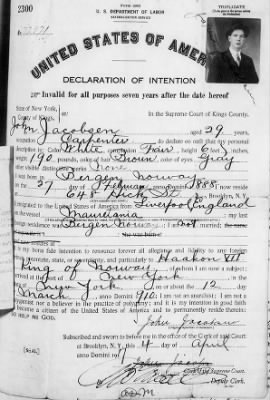 2300
U. S. DEPARTMENT OF LABOR
NATURALIZATION SERVICE
TRIPLICATE
UNITED STATES OF AMERICA
DECLARATION OF INTENTION
Invalid for all purposes seven years after the date hereof
State of New York,
County of Kings,
In the Supreme Court of Kings County.
John Jacobsen aged 29 years,
occupation Carpenter do declare on oath that my personal
description is: Color White complexion Fair height 6 feet inches,
weight 190 pounds, color of hair Brown color of eyes Gray
other visible distinctive marks None
I was born in Bergen Norway
on the 27 day of February anno Domini 1888 I now reside
at 648 Hicks Brooklyn, N. Y.
I emigrated to the United States of America from Liverpool England
on the vessel Mauretania my last
foreign residence was Bergen Norway I am not married;
It is my bona fide intention to renounce forever all allegiance and fidelity to any foreign
prince, potentate, state, or sovereignty, and particularly to Haakon VII
King of Norway of whom I am now a subject; I
arrived at the port of New York in the
State of New York on or about the 12 day
of March anno Domini 1910; I am not an anarchist; I am not a
polygamist nor a believer in the practice of polygamy; and it is my intention in good faith
to become a citizen of the United States of America and to permanently reside therein:
SO HELP ME GOD.
John Jacobsen
Subscribed and sworn to before me in the office of the Clerk of said Court
at Brooklyn, N. Y. this 4 day of April
anno Domini 1917
[SEAL]
Clerk of the Supreme Court.
Deputy Clerk.